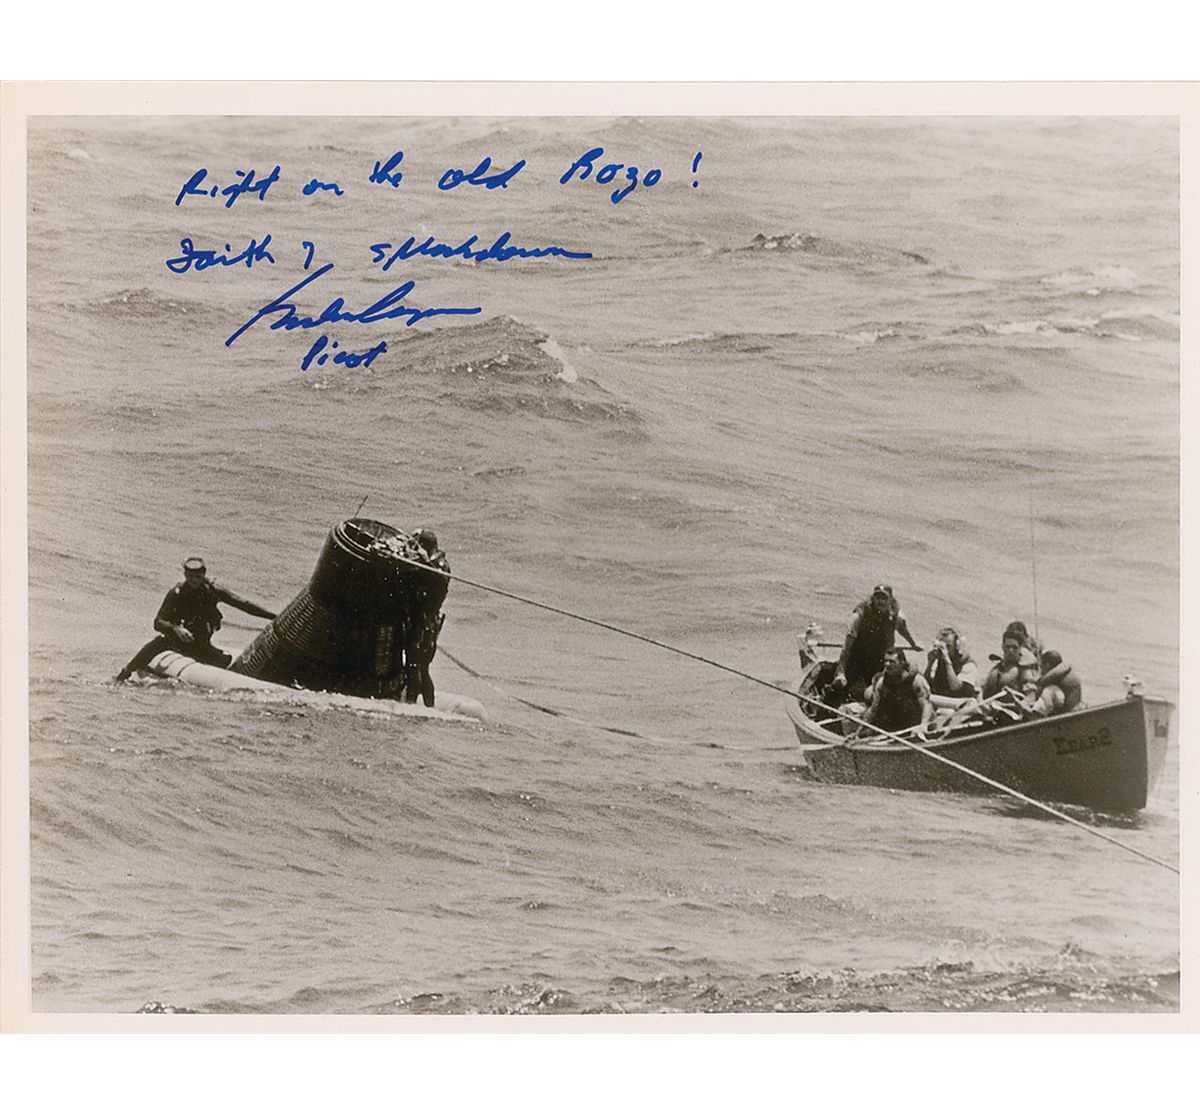 Right on the old Bozo!
Faith 7 splashdown
Gordon Cooper
Pilot
KEAR 2